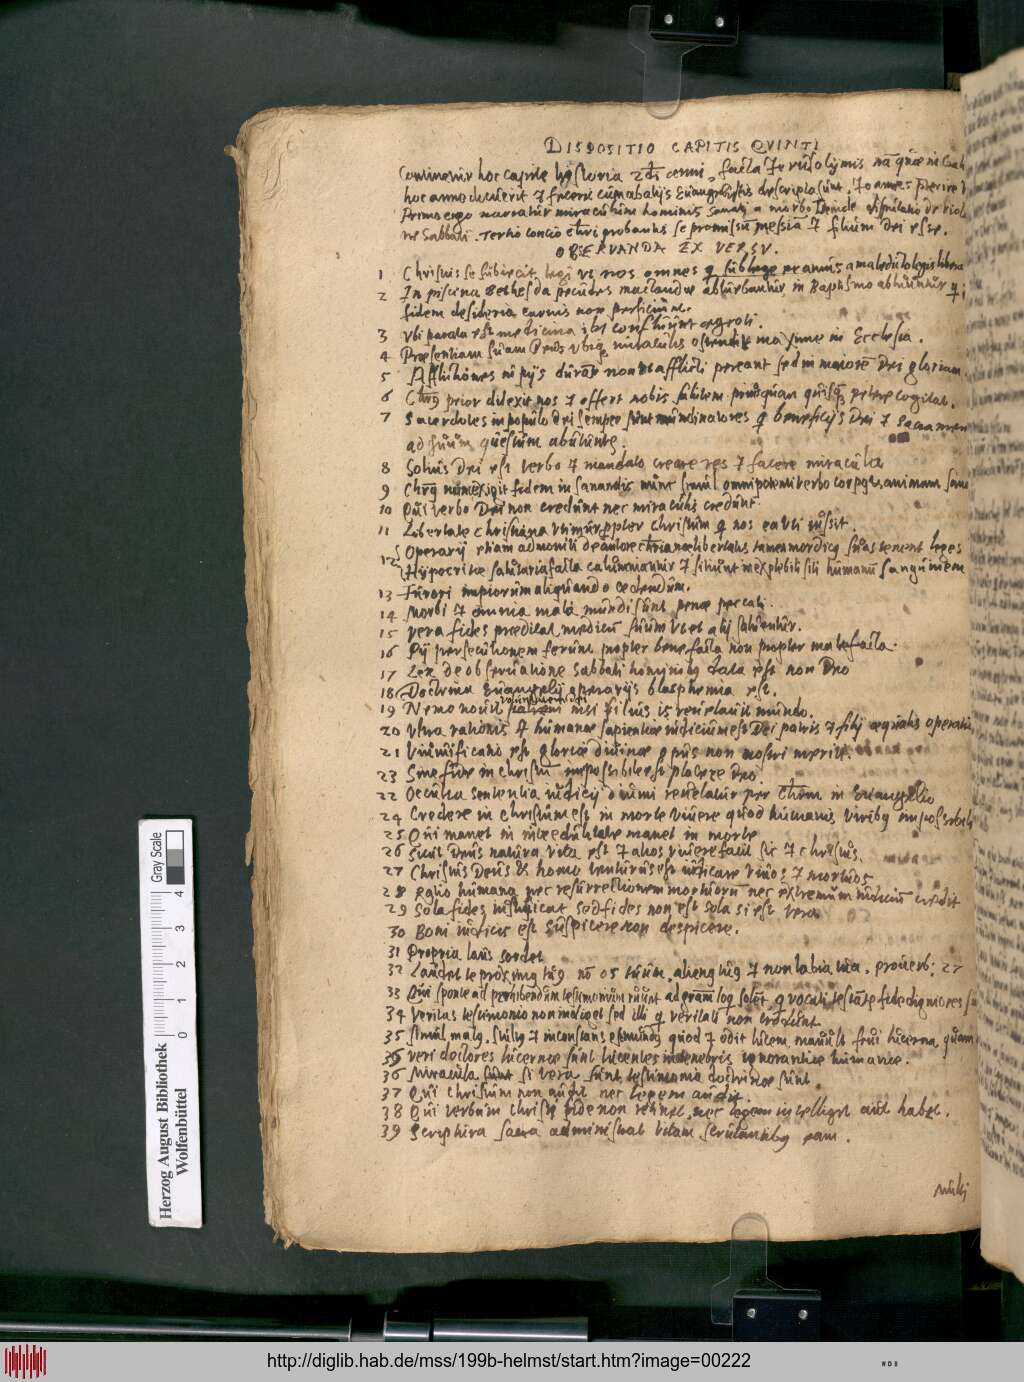 DISPOSITIO CAPITIS QVINTI
Continentur hoc capite historia
hoc anno docuerit & fecerit
Primo ergo narratur miraculum hominis sanati a morbo Deinde disputatio de viola
ne Sabbati. Tertio concio probantis se promissum messiam & filium dei esse.
OBSERVANDA EX VERSU.
1 Christus se subiecit legi ut nos omnes q sub lege eramus a maledicto legis libera
2 In piscina Bethesda pecudes mactandae abluebantur in Baptismo abluuntur q
fidem desideria carnis non perficiunt.
3 Vbi parata est medicina ibi confluunt aegroti.
4 Praesentiam suam Deus vbiq miraculis ostendit maxime in Ecclesia.
5 Afflictiones in pijs durant non ut afflicti pereant sed in maiorem Dei gloriam
6 Chrus prior dilexit nos & offert nobis salutem priusquam quisq petere cogitat.
7 Sacerdotes in populo dei semper sunt nundinatores q beneficijs Dei & Sacramen
ad suum questum abutuntur.
8 Solius Dei est verbo & mandato creare res & facere miracula
9 Chrus nunc exigit fidem in sanandis nunc simul omnipotenti verbo corpus, animam sana
10 Qui verbo Dei non credunt nec miraculis credunt
11 Libertate christiana utimur propter christum q nos ea uti iussit.
12 Operarij etiam admoniti de autore christianae libertatis tamen mordicus suas tenent leges
Hypocritae salutaria facta calumniantur & sitiunt inexplebili siti humanum sanguinem
13 Furori impiorum aliquando cedendum.
14 Morbi & omnia mala mundi sunt penae peccati.
15 Vera fides praedicat medicum suum ut et alij saluentur.
16 Pij persecutionem ferunt propter benefacta non propter malefacta.
17 Lex de obseruatione sabbati hominibus data est non Deo
18 Doctrina Euangelij operarijs blasphemia est.
19 Nemo nouit patrem nisi filius is reuelauit mundo.
20 Vltra rationis & humanae sapientiae iudicium est Dei patris & filij aequalis operatio
21 Viuificatio est gloriae diuinae opus non nostri meriti.
23 Sine fide in christum impossibile est placere Deo
22 Occulta sententia iudicij diuini reuelatur per Chrm in Euangelio
24 Credere in christum est in morte viuere quod humanis viribus impossibile
25 Qui manet in incredulitate manet in morte
26 Sicut Deus natura vita est & alios viuere facit sic & christus.
27 Christus Deus & homo venturus est iudicare viuos & mortuos
28 Ratio humana nec resurrectionem mortuorum nec extremum iudicium credit
29 Sola fides iustificat sed fides non est sola si est vera
30 Boni iudicis est suspicere non despicere.
31 Propria laus sordet
32 Laudet te proximus tuus non os tuum, alienus & non labia tua. prouerb: 27
33 Qui sponte ad perhibendum testimonium ruunt
34 Veritas testimonio non indiget sed illi q veritati non credunt
35 Simul malus, stultus & inconstans est mundus quod & odit lucem, mauult frui lucerna, quam
35 Veri doctores lucernae sunt lucentes in tenebris ignorantiae humanae.
36 Miracula sunt si vera sunt testimonia doctrinae sunt.
37 Qui christum non audit nec legem audit.
38 Qui verbum christi fide non retinet, nec legem intelligit aut habet.
39 Scriptura sacra administrat vitam scrutantibus eam.
Multi
Herzog August Bibliothek
Wolfenbüttel
Gray Scale
0 1 2 3 4
http://diglib.hab.de/mss/199b-helmst/start.htm?image=00222